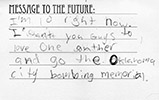 MESSAGE TO THE FUTURE:
I'm 10 right now.
I want you guys to
love One another
and go the Oklahoma
city bombing memorial.